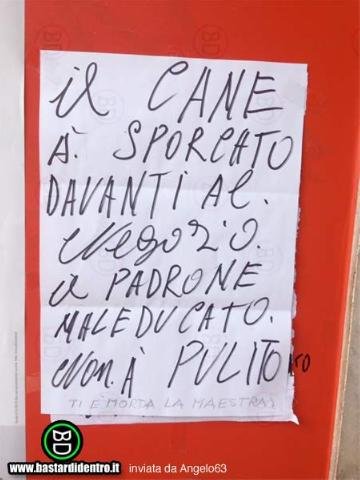 il CANE
À. SPORCATO
DAVANTI AL.
NegOZIO.
il PADRONE
MALEDUCATO.
NON. À PULITO ATO
TI È MORTA LA MAESTRA?
BD
www.bastardidentro.it inviata da Angelo63